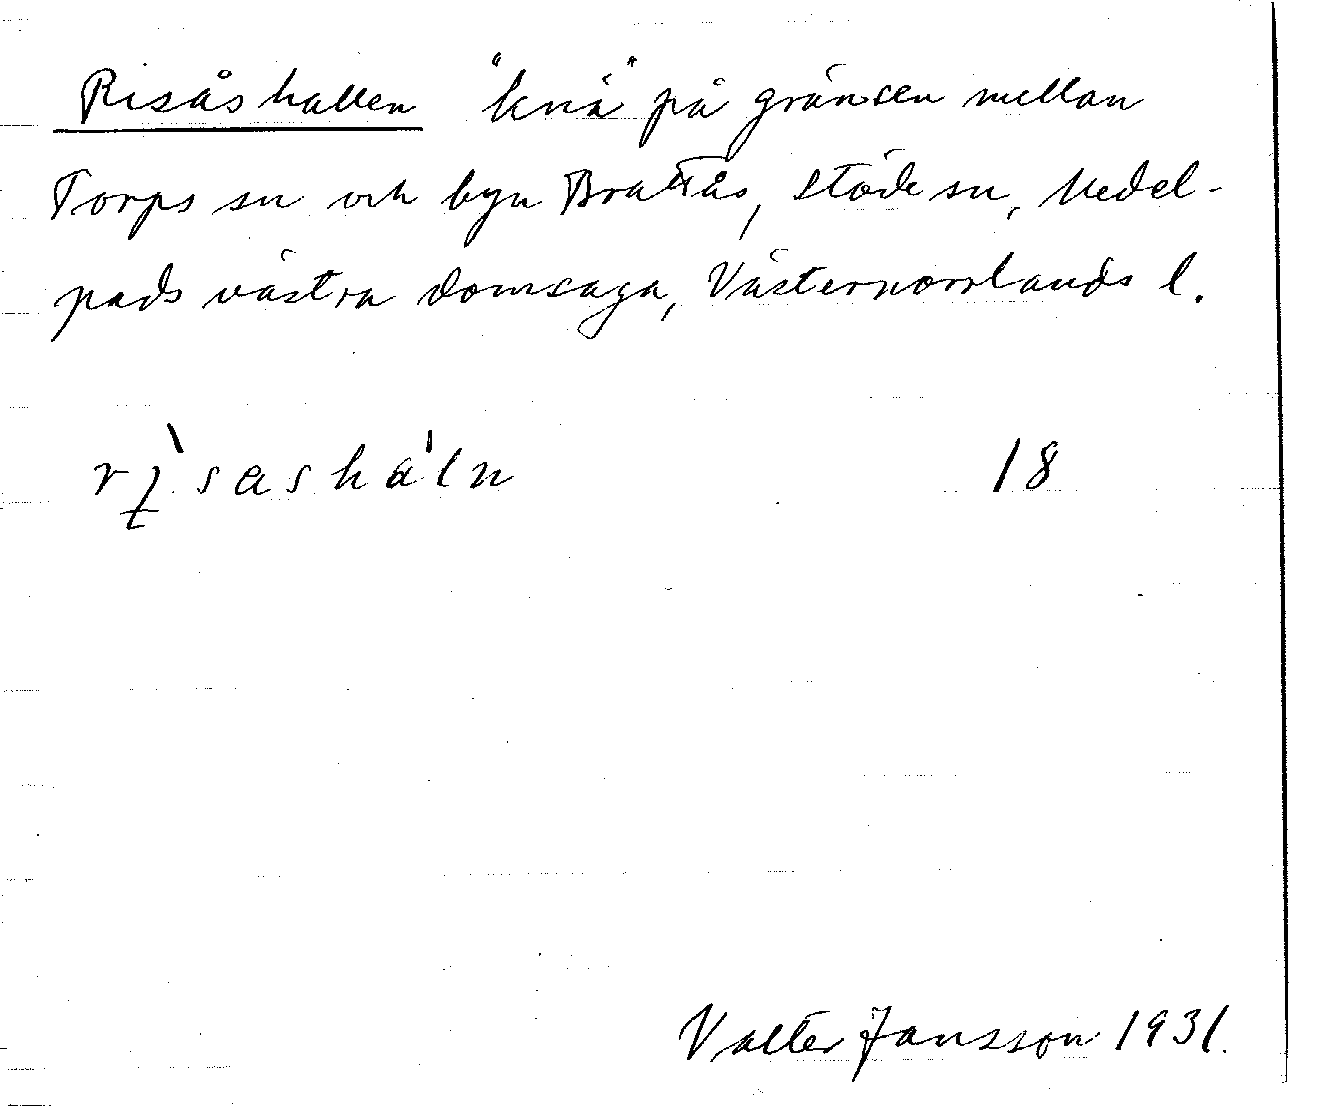 Risåshallen "knä" på gränsen mellan
Torps sn och byn Brattås, Stöde sn, Medel-
pads västra domsaga, Västernorrlands l.
rɩ̀sasháln 18
Valter Jansson 1931.